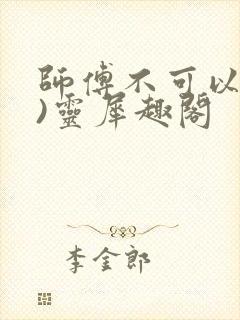 師傅不可以
)靈犀趣閣
李金郎